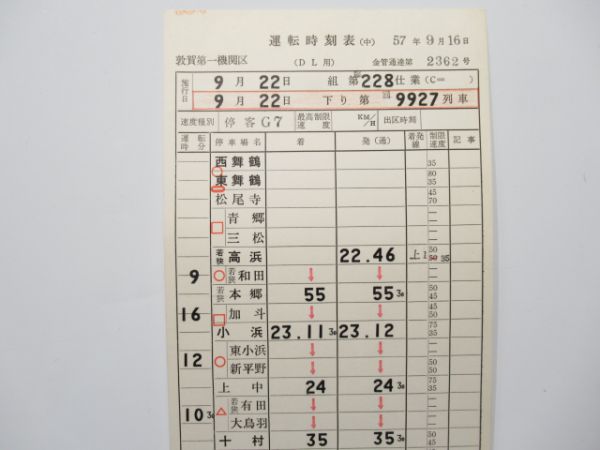 運転時刻表(中) 57年9月16日
敦賀第一機関区 (DL用) 金管通達第 2362号
施行日 9月22日 組第228仕業(C= )
9月22日 下り第 9927列車
速度種別 停客G7 最高制限速度 KM/H 出区時刻
運転時分 停車場名 着 発(通) 着発線 制限速度 記事
西舞鶴 35
東舞鶴 80 35
松尾寺 45 70
青郷 — —
三松 — —
若狭高浜 22.46 上1 50 50 35
9 若狭和田 ↓ ↓ — —
若狭本郷 55 55 30 50 45
16 加斗 ↓ ↓ — —
小浜 23.11 30 23.12 75 35
12 東小浜 ↓ ↓ — —
新平野 ↓ ↓ — —
上中 24 24 30 75 35
10 30 若狭有田 ↓ ↓ — —
大鳥羽 ↓ ↓ — —
十村 35 35 30 50 45